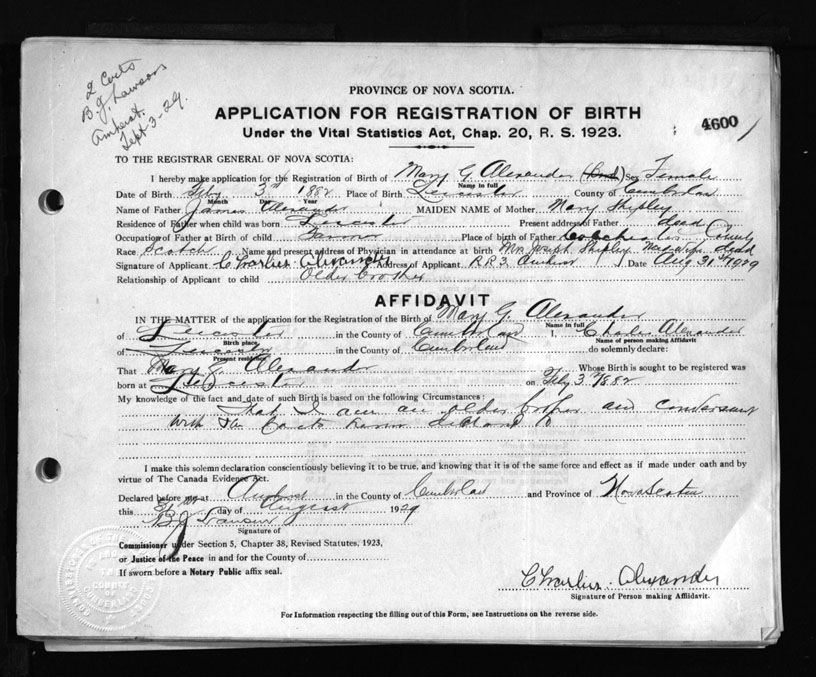 2 Certs
B. J. Lawson
Amherst.
Sept-3-29.
PROVINCE OF NOVA SCOTIA.
APPLICATION FOR REGISTRATION OF BIRTH
4600
Under the Vital Statistics Act, Chap. 20, R. S. 1923.
TO THE REGISTRAR GENERAL OF NOVA SCOTIA:
I hereby make application for the Registration of Birth of Mary G Alexander Sex Female
Name in full
Date of Birth Feby 3rd 1882 Place of Birth Leicester County of Cumberland
Month Day Year
Name of Father James Alexander MAIDEN NAME of Mother Mary Shipley
Residence of Father when child was born Leicester Present address of Father dead
Occupation of Father at Birth of child Farmer Place of birth of Father Colchester County
Race Scotch Name and present address of Physician in attendance at birth Mrs Joseph Shipley dead
Signature of Applicant Charlies Alexander Address of Applicant R R 3 Amherst Date Aug 31st 1929
Relationship of Applicant to child Older brother
AFFIDAVIT
IN THE MATTER of the application for the Registration of the Birth of Mary G. Alexander
Name in full
of Leicester in the County of Cumberland I, Charlies Alexander
Birth place Name of person making Affidavit
of Leicester in the County of Cumberland do solemnly declare:
Present residence
That Mary G. Alexander Whose Birth is sought to be registered was
born at Leicester on Feby 3rd 1882
My knowledge of the fact and date of such Birth is based on the following Circumstances:
That I am an older brother and conversant
with the facts herein declared to
I make this solemn declaration conscientiously believing it to be true, and knowing that it is of the same force and effect as if made under oath and by
virtue of The Canada Evidence Act.
Declared before me at Amherst in the County of Cumberland and Province of Nova Scotia
this 31st day of August 1929
B J Lawson
Signature of
Commissioner under Section 5, Chapter 38, Revised Statutes, 1923,
or Justice of the Peace in and for the County of
If sworn before a Notary Public affix seal.
Charlies Alexander
Signature of Person making Affidavit.
For Information respecting the filling out of this Form, see Instructions on the reverse side.